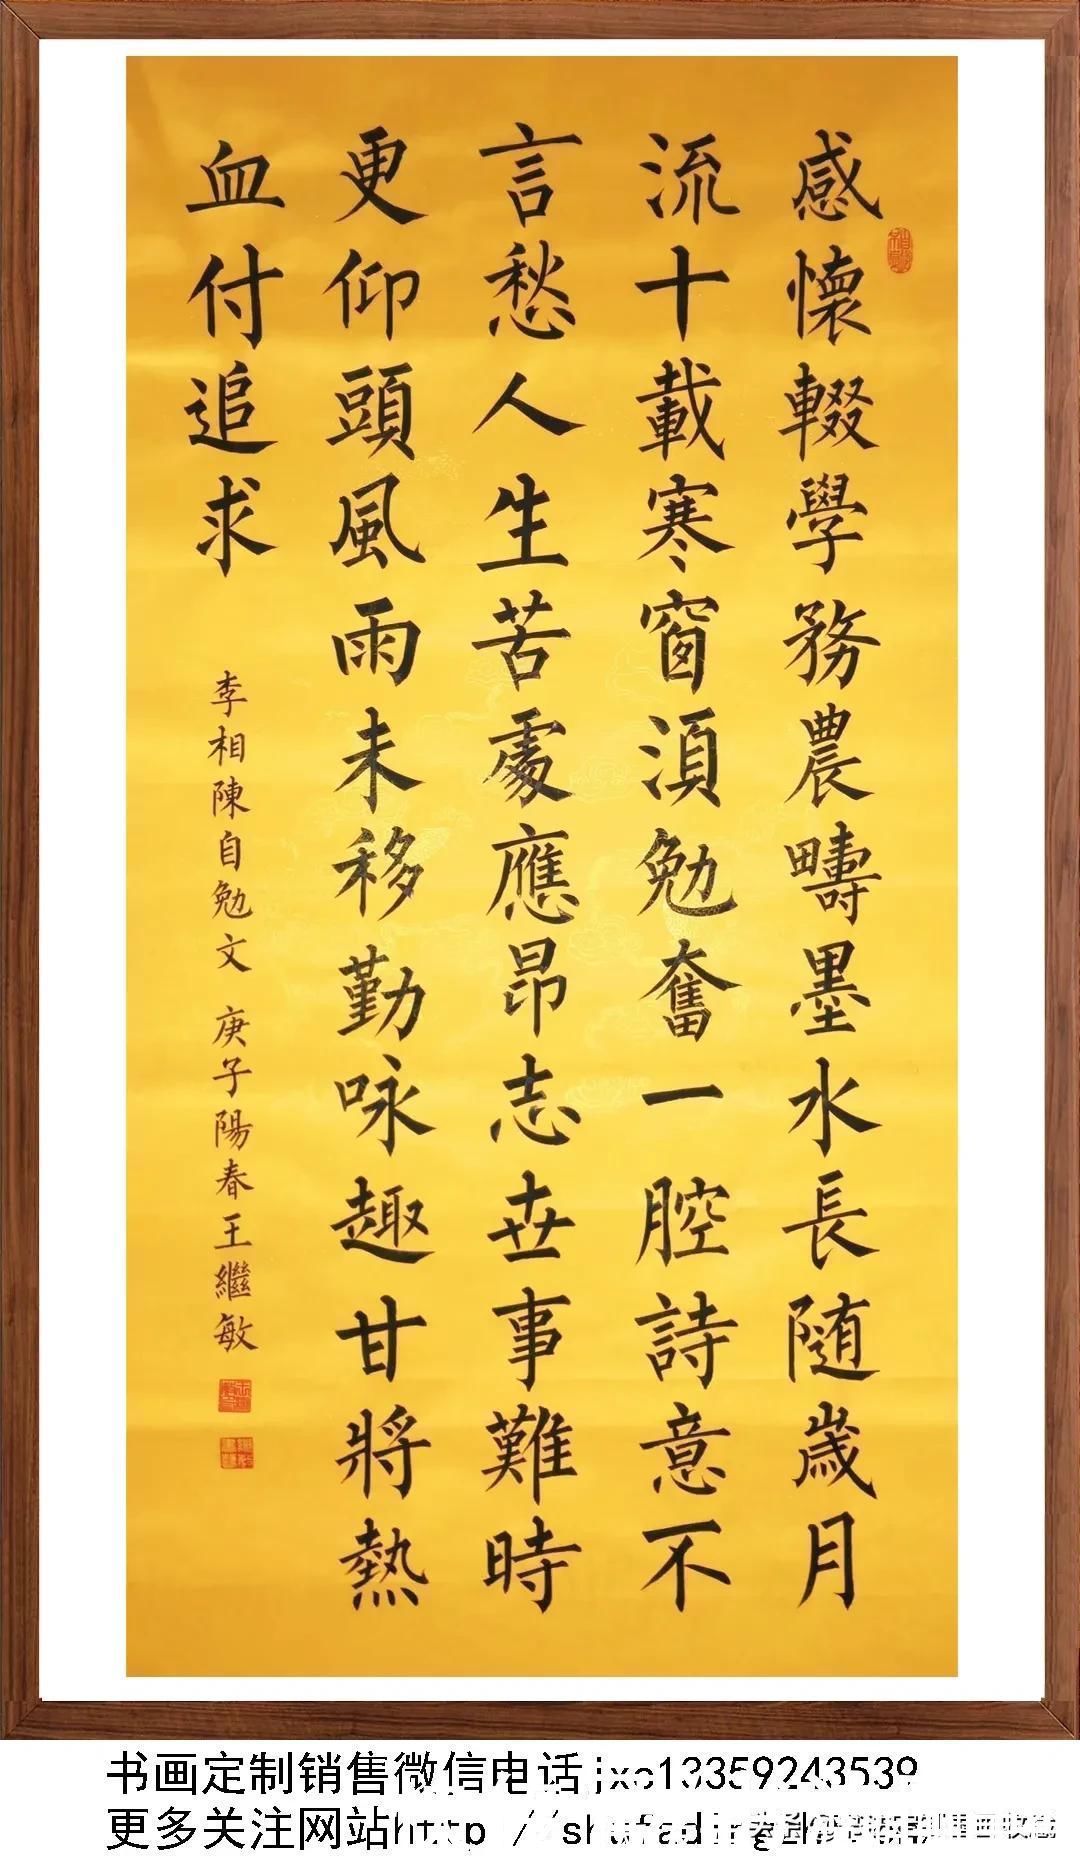 感懷輟學務農疇墨水長随歲月
流十載寒窗須勉奮一腔詩意不
言愁人生苦處應昂志世事難時
更仰頭風雨未移勤咏趣甘將熱
血付追求
李相陳自勉文 庚子陽春王繼敏
书画定制销售微信电话jxc13359243539
更多关注网站http://shufading